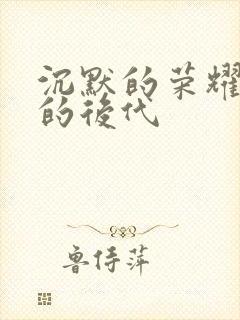 沉默的荣耀
的後代
鲁侍萍